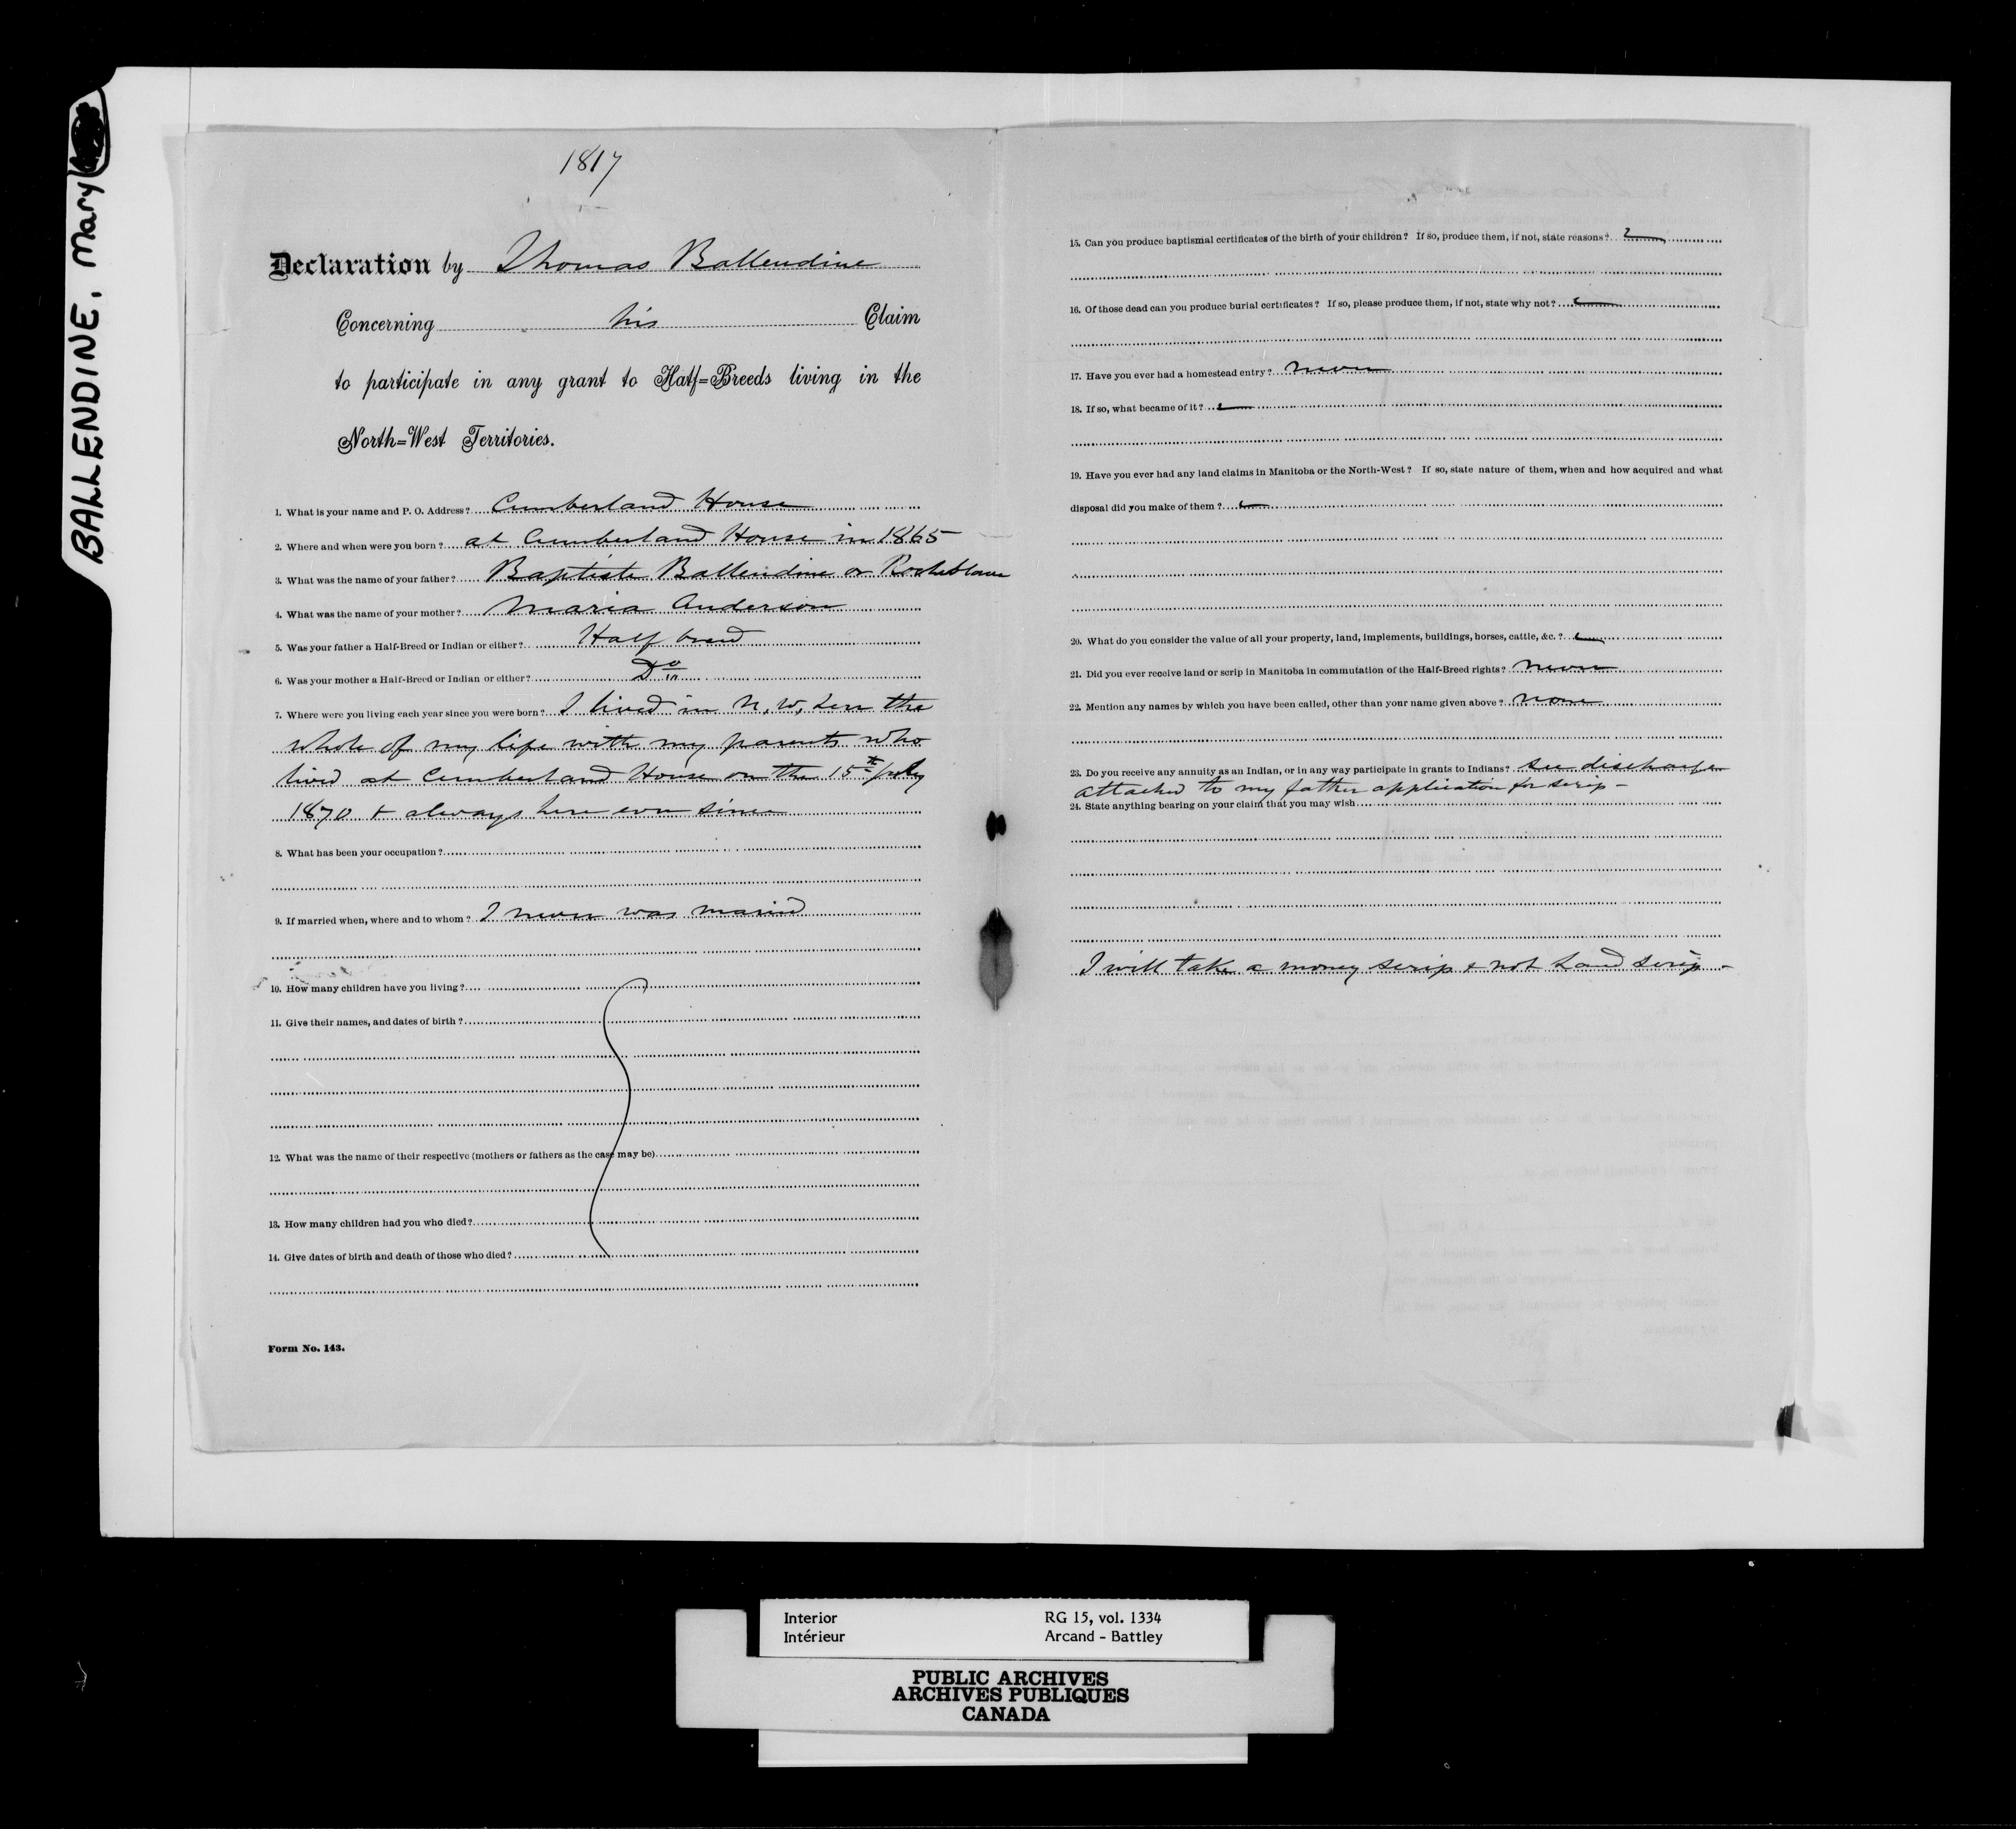 BALLENDINE, Mary
1817
Declaration by Thomas Ballendine
Concerning his Claim
to participate in any grant to Half=Breeds living in the
North=West Territories.
1. What is your name and P. O. Address? Cumberland House
2. Where and when were you born? at Cumberland House in 1865
3. What was the name of your father? Baptiste Ballendine or Rocheblave
4. What was the name of your mother? Maria Anderson
5. Was your father a Half-Breed or Indian or either? Half breed
6. Was your mother a Half-Breed or Indian or either? Do
7. Where were you living each year since you were born? I lived in N. W. Terr the
whole of my life with my parents who
lived at Cumberland House on the 15th July
1870 + always here ever since
8. What has been your occupation?
9. If married when, where and to whom? I never was married
10. How many children have you living?
11. Give their names, and dates of birth?
12. What was the name of their respective (mothers or fathers as the case may be)
13. How many children had you who died?
14. Give dates of birth and death of those who died?
Form No. 143.
15. Can you produce baptismal certificates of the birth of your children? If so, produce them, if not, state reasons?
16. Of those dead can you produce burial certificates? If so, please produce them, if not, state why not?
17. Have you ever had a homestead entry? never
18. If so, what became of it?
19. Have you ever had any land claims in Manitoba or the North-West? If so, state nature of them, when and how acquired and what
disposal did you make of them?
20. What do you consider the value of all your property, land, implements, buildings, horses, cattle, &c.?
21. Did you ever receive land or scrip in Manitoba in commutation of the Half-Breed rights? never
22. Mention any names by which you have been called, other than your name given above? none
23. Do you receive any annuity as an Indian, or in any way participate in grants to Indians? see discharge
attached to my father application for scrip -
24. State anything bearing on your claim that you may wish
I will take a money scrip & not Land scrip -
Interior RG 15, vol. 1334
Intérieur Arcand - Battley
PUBLIC ARCHIVES
ARCHIVES PUBLIQUES
CANADA